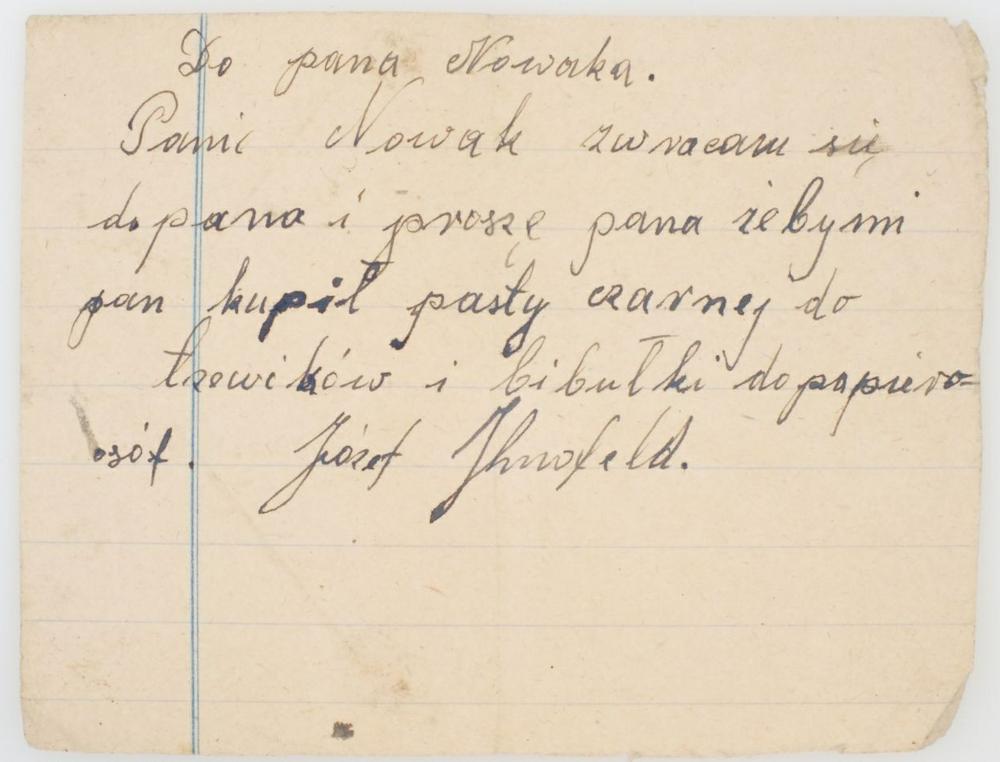 Do pana Nowaka.
Panie Nowak zwracam się
do pana i proszę pana żebymi
pan kupił pasty czarnej do
trzewików i bibułki do papiero=
osóf. Józef